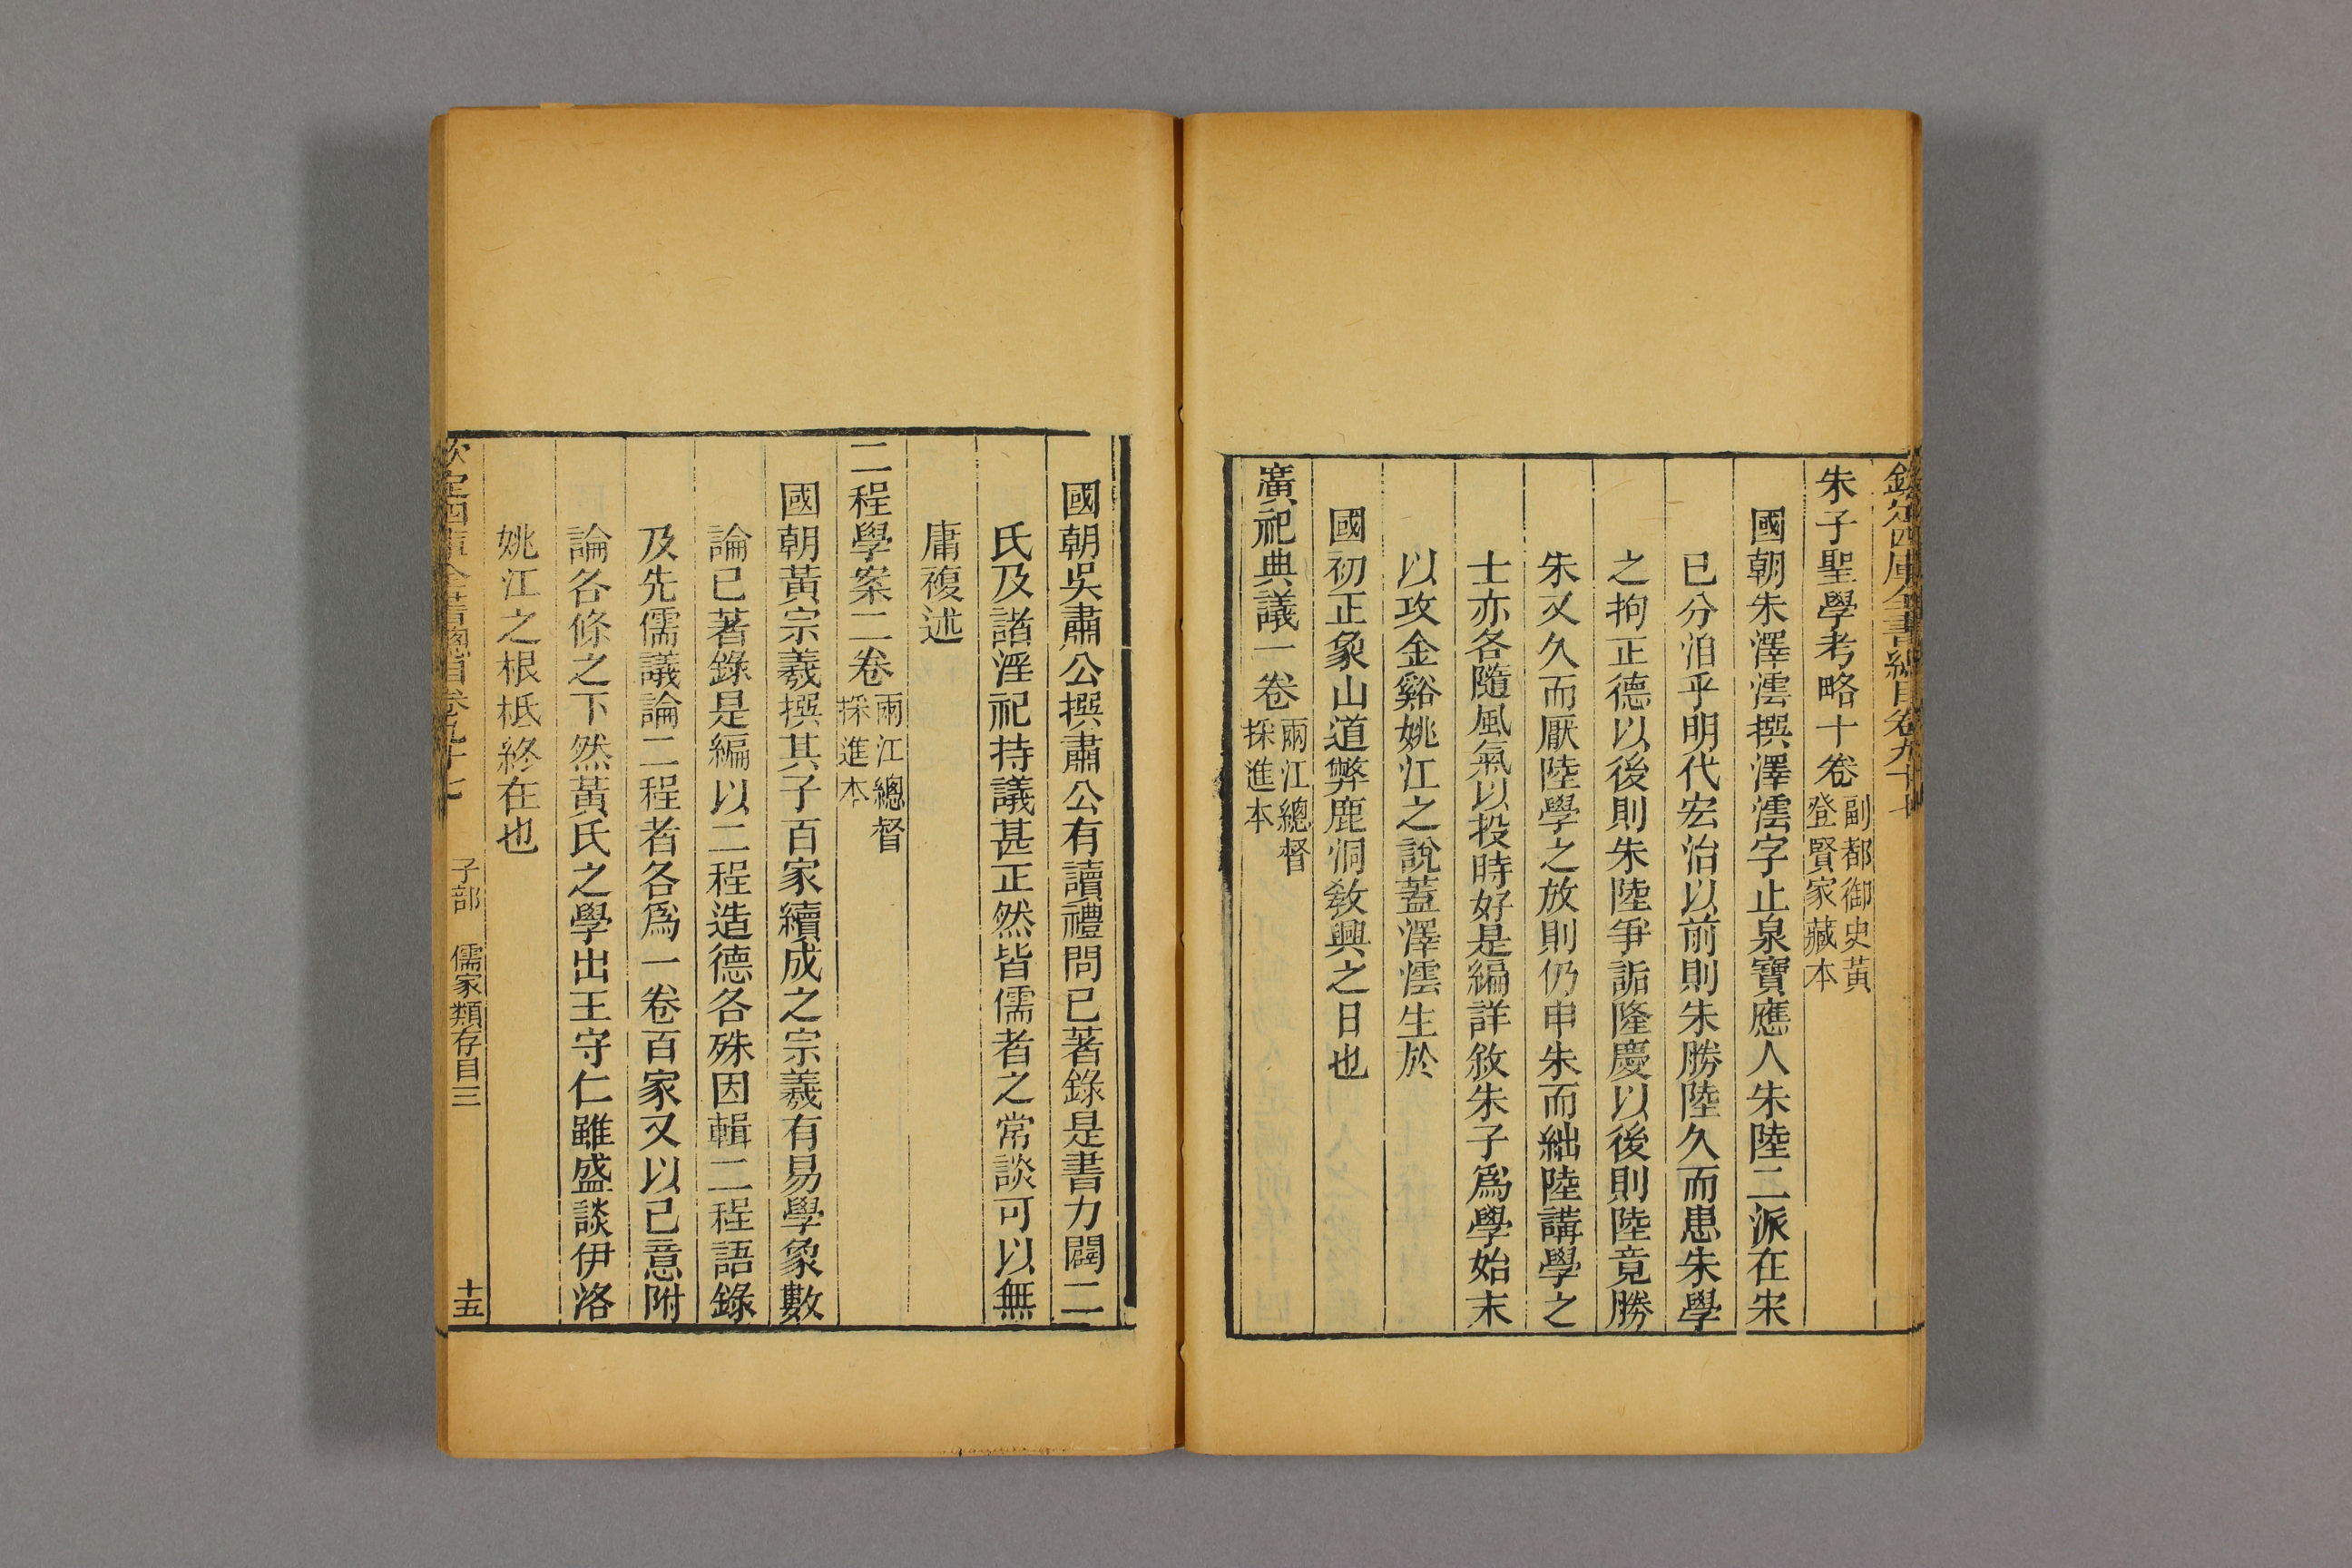 欽定四庫全書總目卷九十七
朱子聖學考略十卷副都御史黃登賢家藏本
國朝朱澤澐撰澤澐字止泉寶應人朱陸二派在宋
已分洎乎明代宏治以前則朱勝陸久而患朱學
之拘正德以後則朱陸爭詬隆慶以後則陸竟勝
朱又久而厭陸學之放則仍申朱而絀陸講學之
士亦各隨風氣以投時好是編詳敘朱子爲學始末
以攻金谿姚江之說蓋澤澐生於
國初正象山道弊鹿洞敎興之日也
廣祀典議一卷兩江總督採進本
國朝吳肅公撰肅公有讀禮問已著錄是書力闢二
氏及諸淫祀持議甚正然皆儒者之常談可以無
庸複述
二程學案二卷兩江總督採進本
國朝黃宗羲撰其子百家續成之宗羲有易學象數
論已著錄是編以二程造德各殊因輯二程語錄
及先儒議論二程者各爲一卷百家又以己意附
論各條之下然黃氏之學出王守仁雖盛談伊洛
姚江之根柢終在也
欽定四庫全書總目卷九十七 子部 儒家類存目三 十五